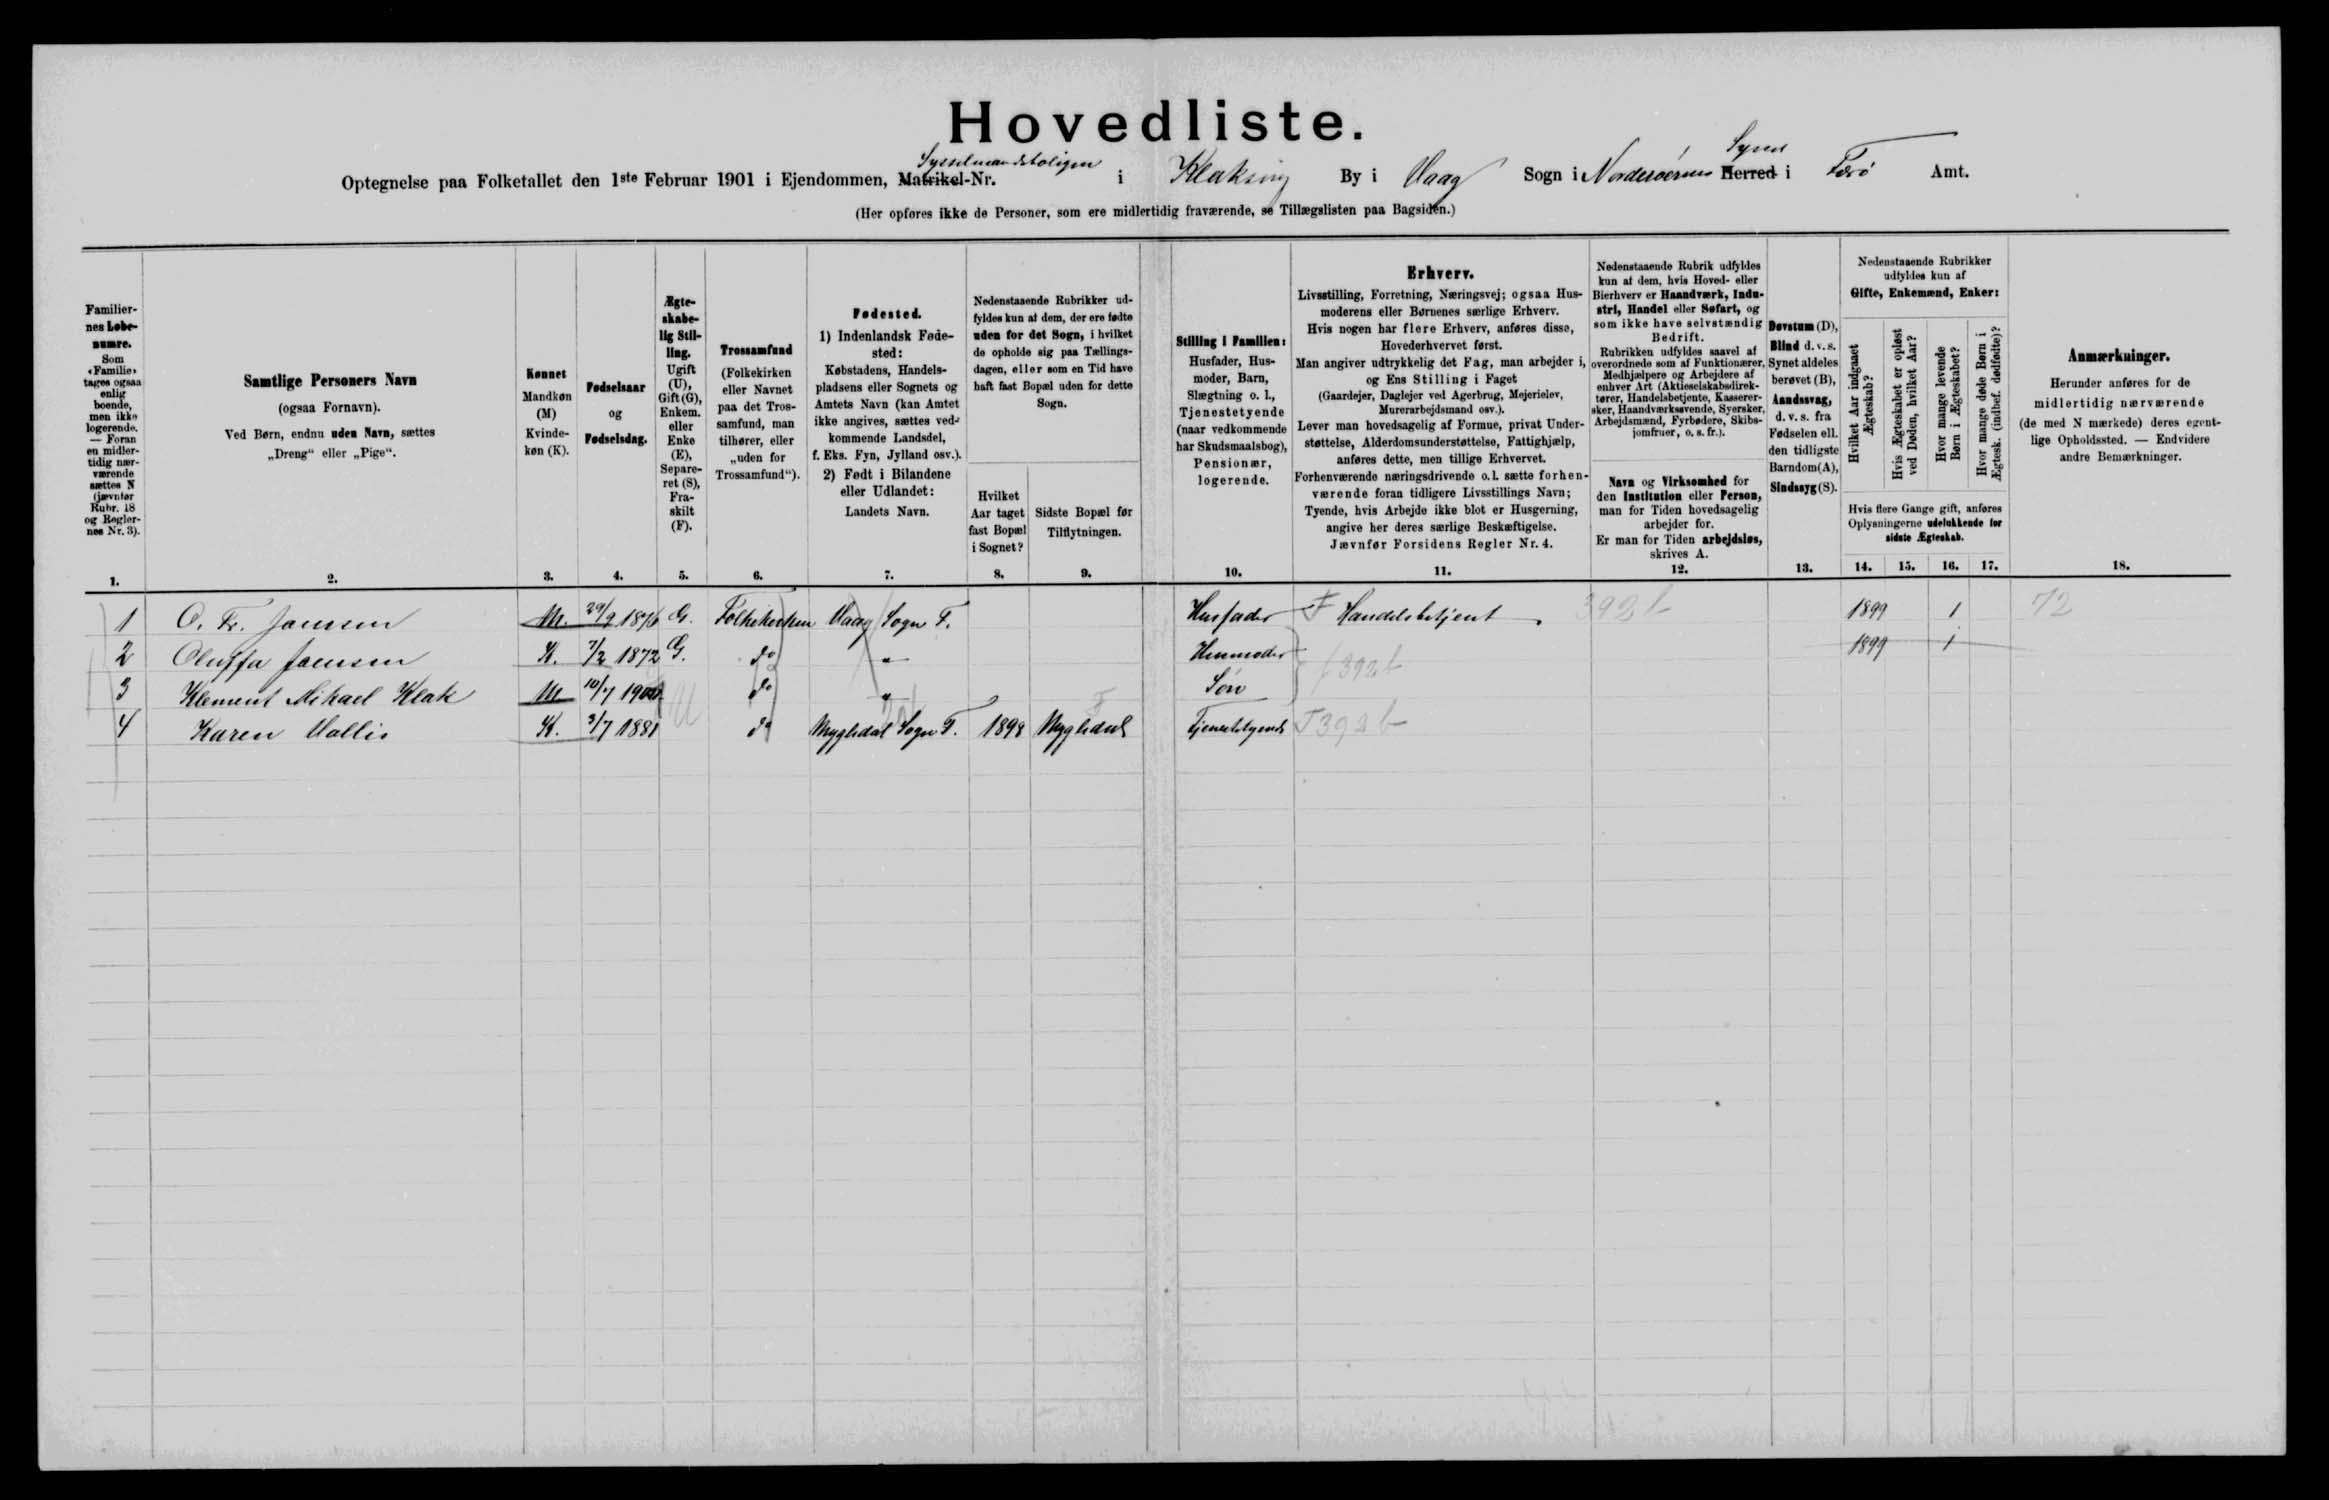 Hovedliste.
Sysselmandsboligen Syssel
Optegnelse paa Folketallet den 1ste Februar 1901 i Ejendommen, Matrikel-Nr. i Klaksvig By i Vaag Sogn i Norderøernes Herred i Færø Amt.
(Her opføres ikke de Personer, som ere midlertidig fraværende, se Tillægslisten paa Bagsiden.)
Familier-
nes Løbe-
numre.
Som
«Familie»
tages ogsaa
enlig
boende,
men ikke
logerende.
— Foran
en midler-
tidig nær-
værende
sættes N
(jævnfør
Rubr. 18
og Regler-
nes Nr. 3).
1.
Samtlige Personers Navn
(ogsaa Fornavn).
Ved Børn, endnu uden Navn, sættes
„Dreng“ eller „Pige“.
2.
Kønnet
Mandkøn
(M)
Kvinde-
køn (K).
3.
Fødselsaar
og
Fødselsdag.
4.
Ægte-
skabe-
lig Stil-
ling.
Ugift
(U),
Gift (G),
Enkem.
eller
Enke
(E),
Separe-
ret (S),
Fra-
skilt
(F).
5.
Trossamfund
(Folkekirken
eller Navnet
paa det Tros-
samfund, man
tilhører, eller
„uden for
Trossamfund“).
6.
Fødested.
1) Indenlandsk Føde-
sted:
Købstadens, Handels-
pladsens eller Sognets og
Amtets Navn (kan Amtet
ikke angives, sættes ved-
kommende Landsdel,
f. Eks. Fyn, Jylland osv.).
2) Født i Bilandene
eller Udlandet:
Landets Navn.
7.
Nedenstaaende Rubrikker ud-
fyldes kun af dem, der ere fødte
uden for det Sogn, i hvilket
de opholde sig paa Tællings-
dagen, eller som en Tid have
haft fast Bopæl uden for dette
Sogn.
Hvilket
Aar taget
fast Bopæl
i Sognet?
8.
Sidste Bopæl før
Tilflytningen.
9.
Stilling i Familien:
Husfader, Hus-
moder, Barn,
Slægtning o. l.,
Tjenestetyende
(naar vedkommende
har Skudsmaalsbog),
Pensionær,
logerende.
10.
Erhverv.
Livsstilling, Forretning, Næringsvej; ogsaa Hus-
moderens eller Børnenes særlige Erhverv.
Hvis nogen har flere Erhverv, anføres disse,
Hovederhvervet først.
Man angiver udtrykkelig det Fag, man arbejder i,
og Ens Stilling i Faget
(Gaardejer, Daglejer ved Agerbrug, Mejerielev,
Murerarbejdsmand osv.).
Lever man hovedsagelig af Formue, privat Under-
støttelse, Alderdomsunderstøttelse, Fattighjælp,
anføres dette, men tillige Erhvervet.
Forhenværende næringsdrivende o. l. sætte forhen-
værende foran tidligere Livsstillings Navn;
Tyende, hvis Arbejde ikke blot er Husgerning,
angive her deres særlige Beskæftigelse.
Jævnfør Forsidens Regler Nr. 4.
11.
Nedenstaaende Rubrik udfyldes
kun af dem, hvis Hoved- eller
Bierhverv er Haandværk, Indu-
stri, Handel eller Søfart, og
som ikke have selvstændig
Bedrift.
Rubrikken udfyldes saavel af
overordnede som af Funktionærer,
Medhjælpere og Arbejdere af
enhver Art (Aktieselskabsdirek-
tører, Handelsbetjente, Kasserer-
sker, Haandværkssvende, Syersker,
Arbejdsmænd, Fyrbødere, Skibs-
jomfruer, o. s. fr.).
Navn og Virksomhed for
den Institution eller Person,
man for Tiden hovedsagelig
arbejder for.
Er man for Tiden arbejdsløs,
skrives A.
12.
Døvstum (D),
Blind d. v. s.
Synet aldeles
berøvet (B),
Aandssvag,
d. v. s. fra
Fødselen ell.
den tidligste
Barndom (A),
Sindssyg (S).
13.
Nedenstaaende Rubrikker
udfyldes kun af
Gifte, Enkemænd, Enker:
Hvilket Aar indgaaet
Ægteskab?
Hvis Ægteskabet er opløst
ved Døden, hvilket Aar?
Hvor mange levende
Børn i Ægteskabet?
Hvor mange døde Børn i
Ægtesk. (indbef. dødfødte)?
Hvis flere Gange gift, anføres
Oplysningerne udelukkende for
sidste Ægteskab.
14. 15. 16. 17.
Anmærkninger.
Herunder anføres for de
midlertidig nærværende
(de med N mærkede) deres egent-
lige Opholdssted. — Endvidere
andre Bemærkninger.
18.
1 O. Fr. Joensen M. 29/9 1876 G. Folkekirken Vaag Sogn F. Husfader F Handelsbetjent 392b 1899 1 72
2 Oluffa Joensen K. 7/2 1872 G. do " Husmoder 392b 1899 1
3 Klement Mikael Klak M 10/7 1900 do " Søn
4 Karen Vallis K. 3/7 1881 U do Myglidal Sogn F. 1898 Myglidal Tjenestetyende T 392b